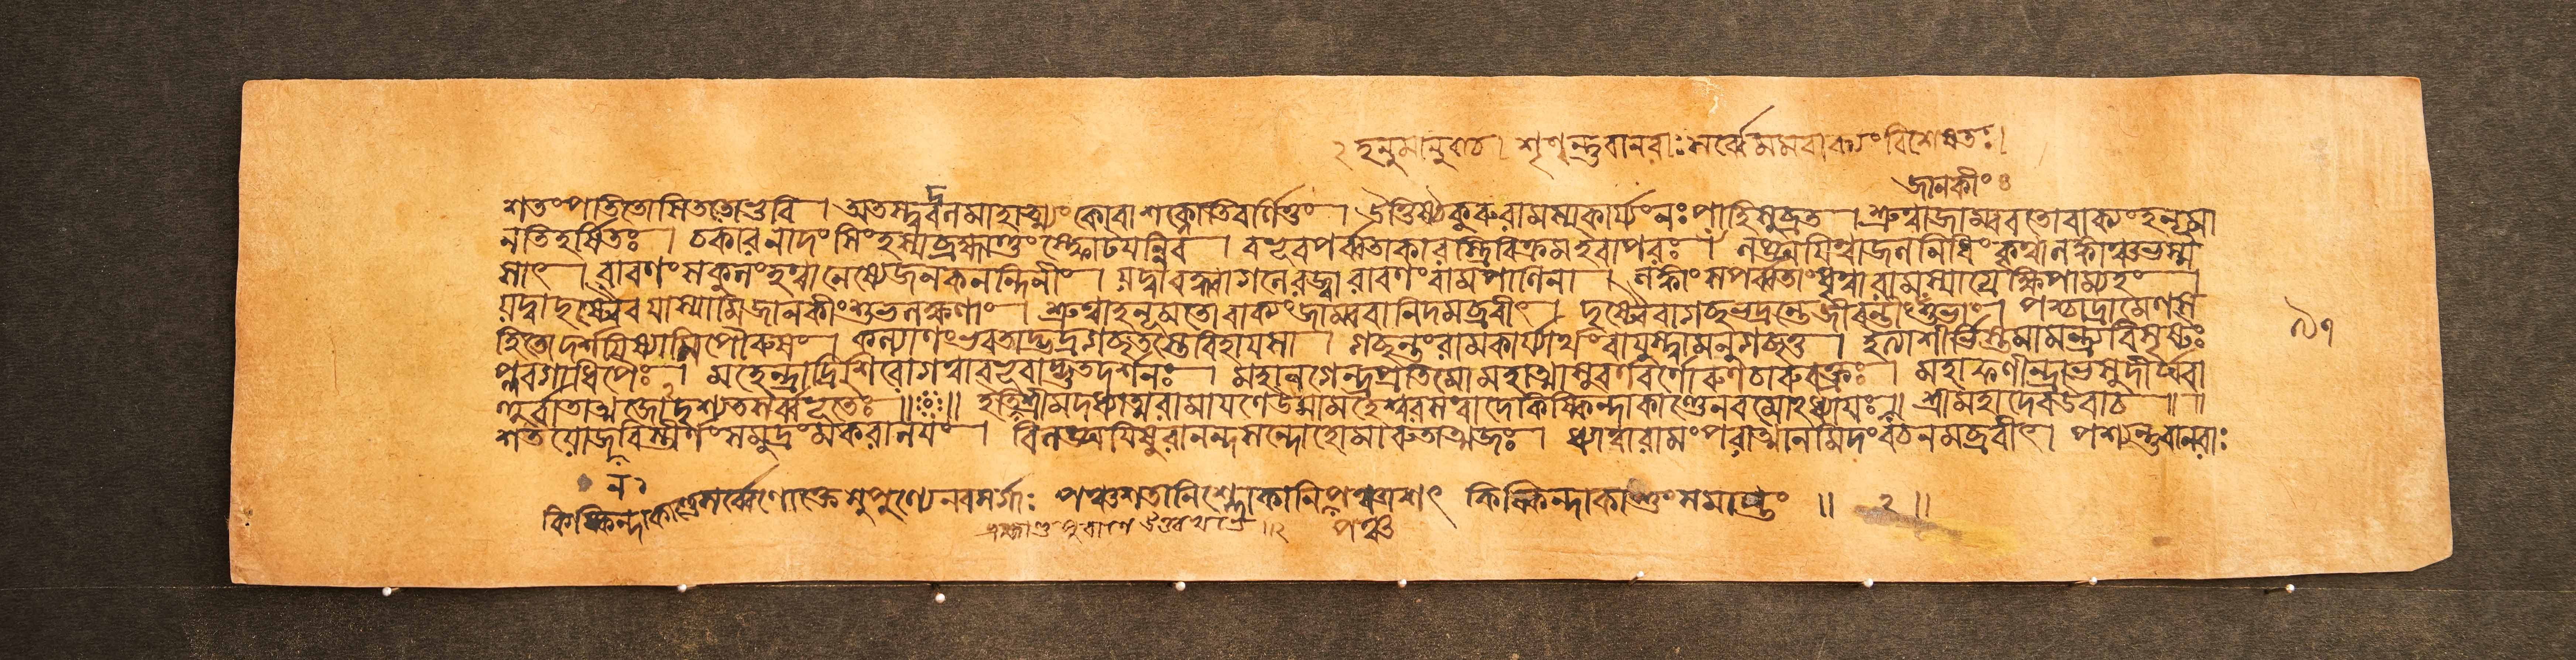 ২ হনুমানুবাচ। শৃণ্বন্তুবানরাঃসর্ব্বেমমবাক্যংবিশেষতঃ।
জানকীং
শতংপতিতোস্মিততোভুবি। অতস্ত্বদ্বলমাহাত্ম্যংকোবাশক্নোতিবর্ণিতুং। উত্তিষ্ঠকুরুরামস্যকার্য্যংনঃপাহিসুব্রত। শ্রুত্বাজাম্ববতোবাক্যংহনূমা
নতিহর্ষিতঃ। চকারনাদংসিংহস্যব্রহ্মাণ্ডংস্ফোটয়ন্নিব। বভূবপর্ব্বতাকারস্ত্রিবিক্রমইবাপরঃ। লঙ্ঘয়িত্বাজলনিধিংকৃত্বালঙ্কাঞ্চভস্ম
সাৎ। রাবণংসকুলংহত্বানেষ্যেজনকনন্দিনীং। যদ্বাবদ্ধ্বাগলেরজ্জ্বারাবণংবামপাণিনা। লঙ্কাংসপর্ব্বতাংধৃত্বারামস্যাগ্রেক্ষিপাম্যহং।
যদ্বাদৃষ্ট্বৈবযাস্যামিজানকীংশুভলক্ষণাং। শ্রুত্বাহনূমতোবাক্যংজাম্ববানিদমব্রবীৎ। দৃষ্ট্বৈবাগচ্ছভদ্রন্তেজীবন্তীংশুভাং। পশ্চাদ্রামেণস
হিতোদর্শয়িষ্যসিপৌরুষং। কল্যাণংভবতাদ্ভদ্রগচ্ছতস্তেবিহায়সা। গচ্ছন্তংরামকার্য্যার্থংবায়ুস্ত্বামনুগচ্ছতু। ইত্যাশীর্ভিস্তমামন্ত্র্যবিসৃষ্টঃ
প্লবগাধিপৈঃ। মহেন্দ্রাদ্রিশিরোগত্বাবভূবাদ্ভুতদর্শনঃ। মহানগেন্দ্রপ্রতিমোমহাত্মাসুবর্ণবর্ণোরুণচারুবক্ত্রঃ। মহাফণীন্দ্রাভসুদীর্ঘবা
হুর্বাতাত্মজোদৃশ্যতসর্ব্বভূতৈঃ॥ঃ॥ ইতিশ্রীমদধ্যাত্মরামায়ণেউমামহেশ্বরসম্বাদেকিষ্কিন্দাকাণ্ডেনবমোঽধ্যায়ঃ॥ শ্রীমহাদেবউবাচ॥॥
শতযোজবিস্তীর্ণংসমুদ্রংমকরালয়ং। বিলঙ্ঘয়িষুরানন্দসন্দোহোমারুতাত্মজঃ। ধ্যাত্বারামংপরাত্মানমিদংবচনমব্রবীৎ। পশ্যন্তুবানরাঃ
ন২
৯৭
কিষ্কিন্দাকাণ্ডেসর্ব্বেণোক্তেসুপুণ্যেনবসর্গাঃ পঞ্চশতানিশ্লোকানিপঞ্চাশৎ কিষ্কিন্দাকাণ্ডংসমাপ্তং॥ ২॥
পঞ্চ